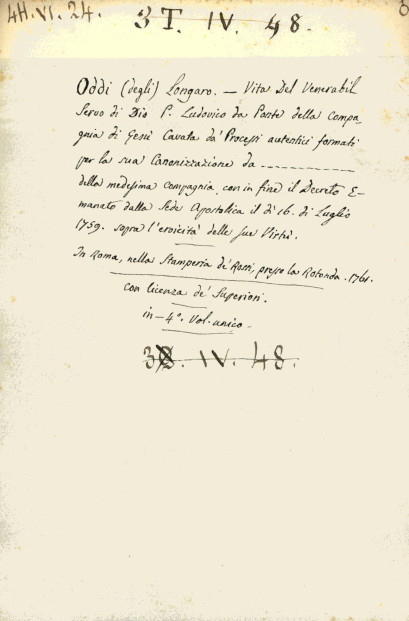 4H. VI. 24.
3T. IV. 48.
Oddi (degli) Longaro. — Vita Del Venerabil
Servo di Dio P. Ludovico da Ponte della Compa
gnia di Gesù Cavata da' Processi autentici formati
per la sua Canonizzazione da ----------
della medesima compagnia, con in fine il Decreto E-
manato dalla Sede Apostolica il dì 16. di Luglio
1759. sopra l'eroicità delle sue Virtù.
In Roma, nella Stamperia de' Rossi, presso la Rotonda. 1761.
con licenza de' Superiori.
in-4°. Vol. unico.
IV. 48.